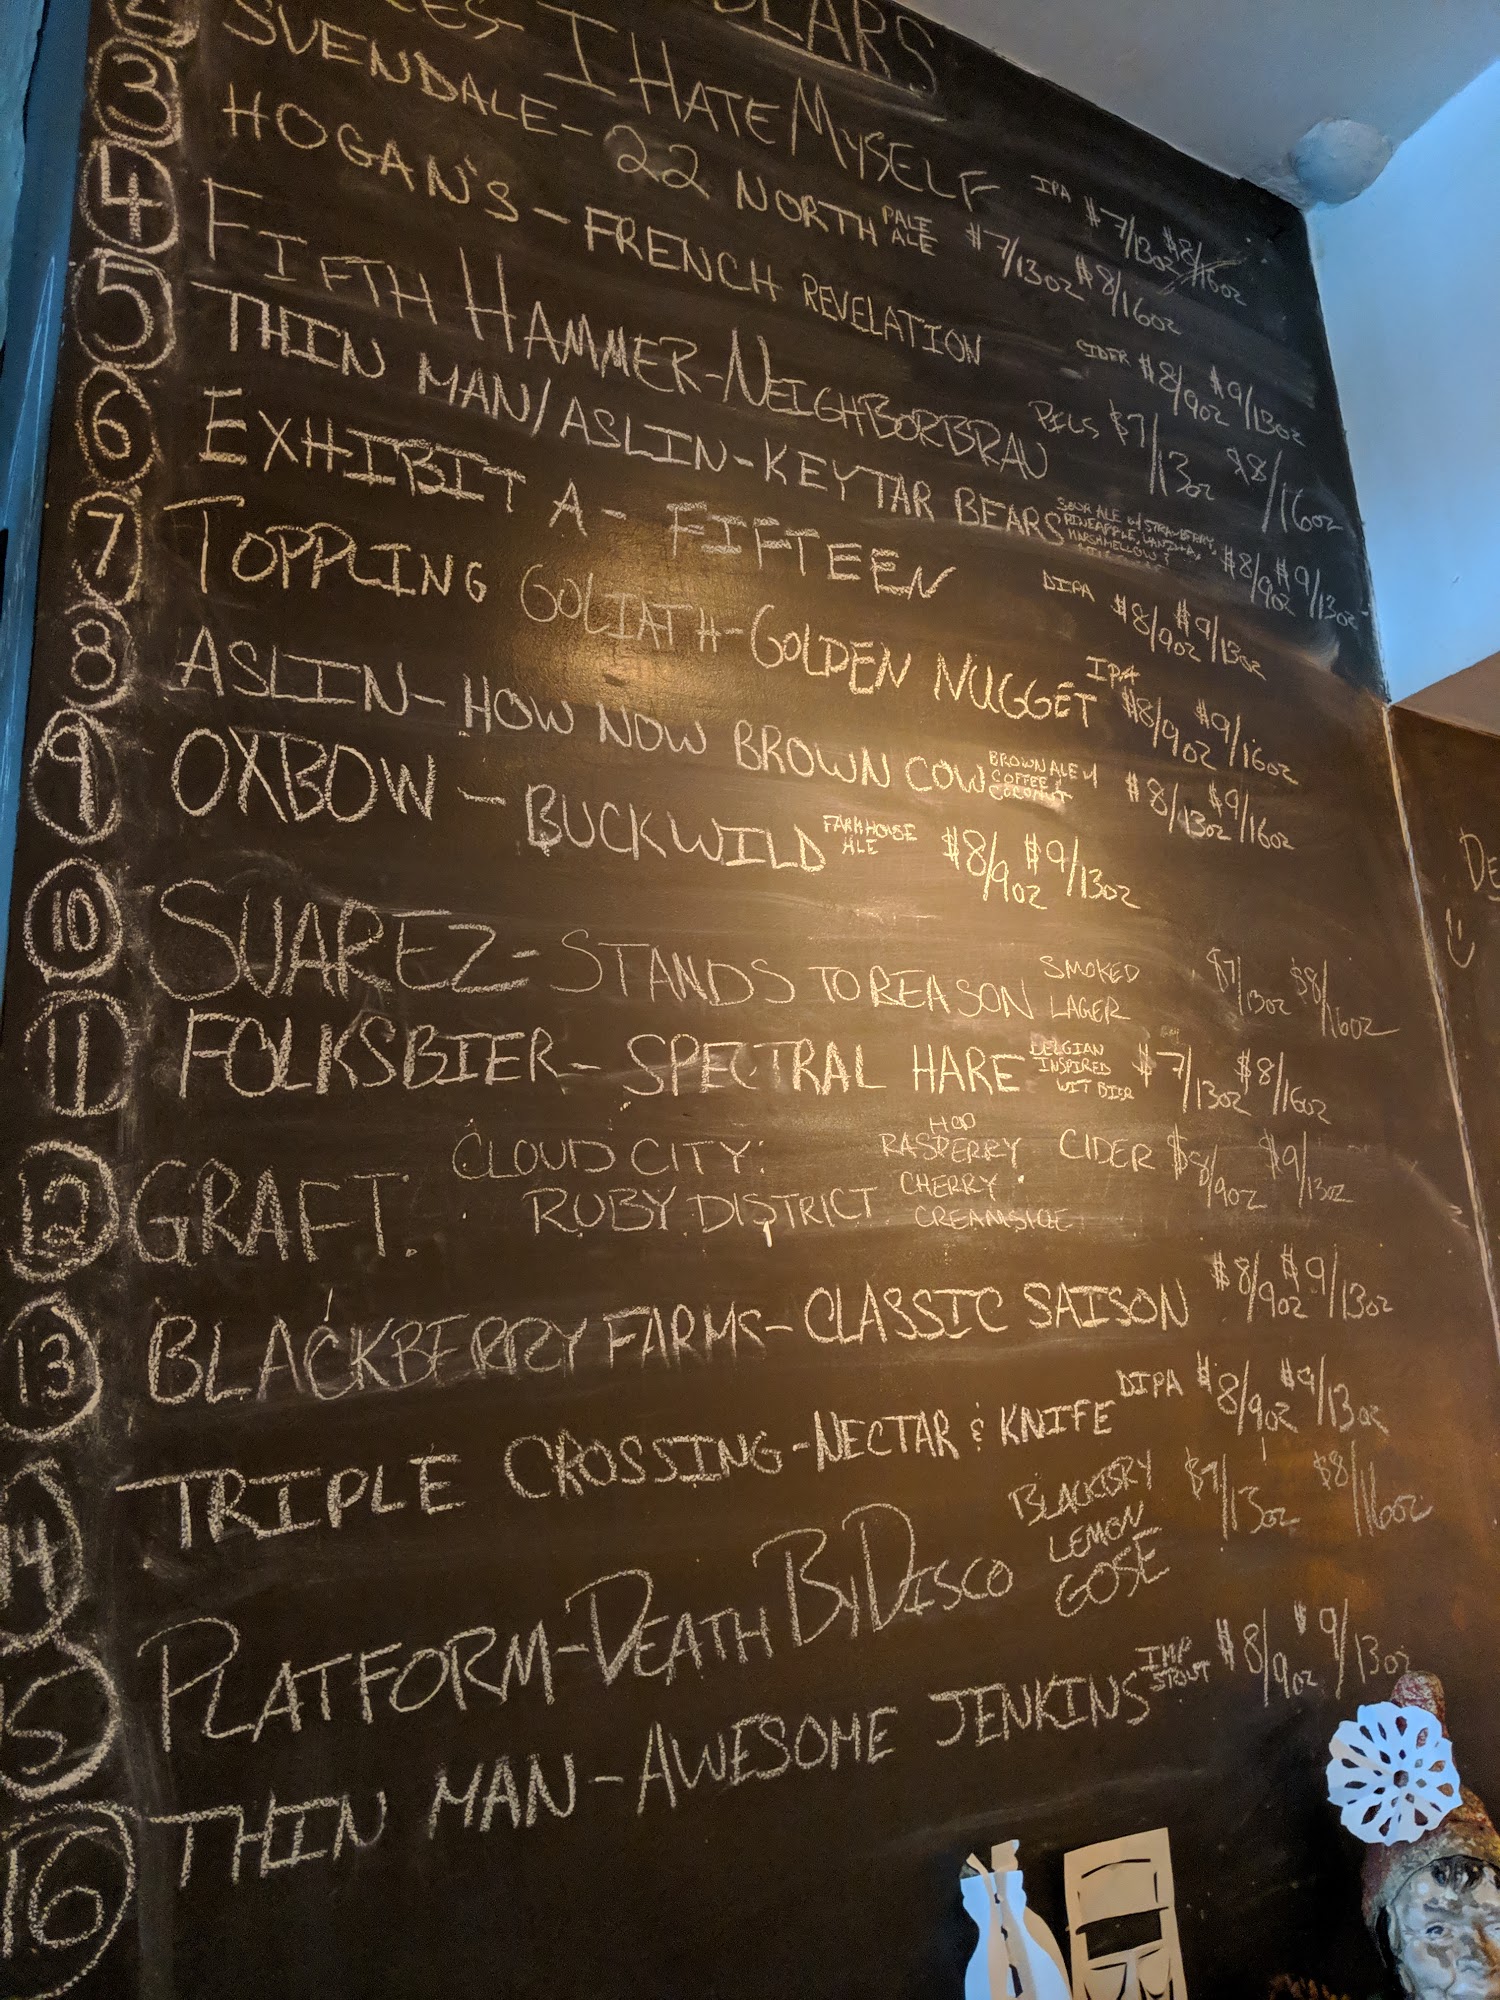 EARS
I HATE MYSELF IPA $7/13oz $8/16oz
3 SVENDALE - 22 NORTH PALE ALE $7/13oz $8/16oz
4 HOGAN'S - FRENCH REVELATION CIDER $8/9oz $9/13oz
5 FIFTH HAMMER - NEIGHBORBRAU PILS $7/13oz $8/16oz
6 THIN MAN/ASLIN - KEYTAR BEARS SOUR ALE W/ STRAWBERRY, PINEAPPLE, VANILLA, MARSHMELLOW & $8/9oz $9/13oz
7 EXHIBIT A - FIFTEEN DIPA $8/9oz $9/13oz
8 TOPPLING GOLIATH - GOLDEN NUGGET IPA $8/9oz $9/16oz
9 ASLIN - HOW NOW BROWN COW BROWN ALE W/ COFFEE & COCONUT $8/13oz $9/16oz
OXBOW - BUCKWILD FARMHOUSE ALE $8/9oz $9/13oz
10 SUAREZ - STANDS TO REASON SMOKED LAGER $7/13oz $8/16oz
11 FOLKSBIER - SPECTRAL HARE BELGIAN INSPIRED WIT BIER $7/13oz $8/16oz
12 GRAFT: CLOUD CITY: RUBY DISTRICT HOP RASPBERRY CHERRY CREAMSICLE CIDER $8/9oz $9/13oz
13 BLACKBERRY FARMS - CLASSIC SAISON $8/9oz $9/13oz
14 TRIPLE CROSSING - NECTAR & KNIFE DIPA $8/9oz $9/13oz
15 PLATFORM - DEATH BY DISCO BLACKBRY LEMON GOSE $7/13oz $8/16oz
16 THIN MAN - AWESOME JENKINS IMP STOUT $8/9oz $9/13oz
DE